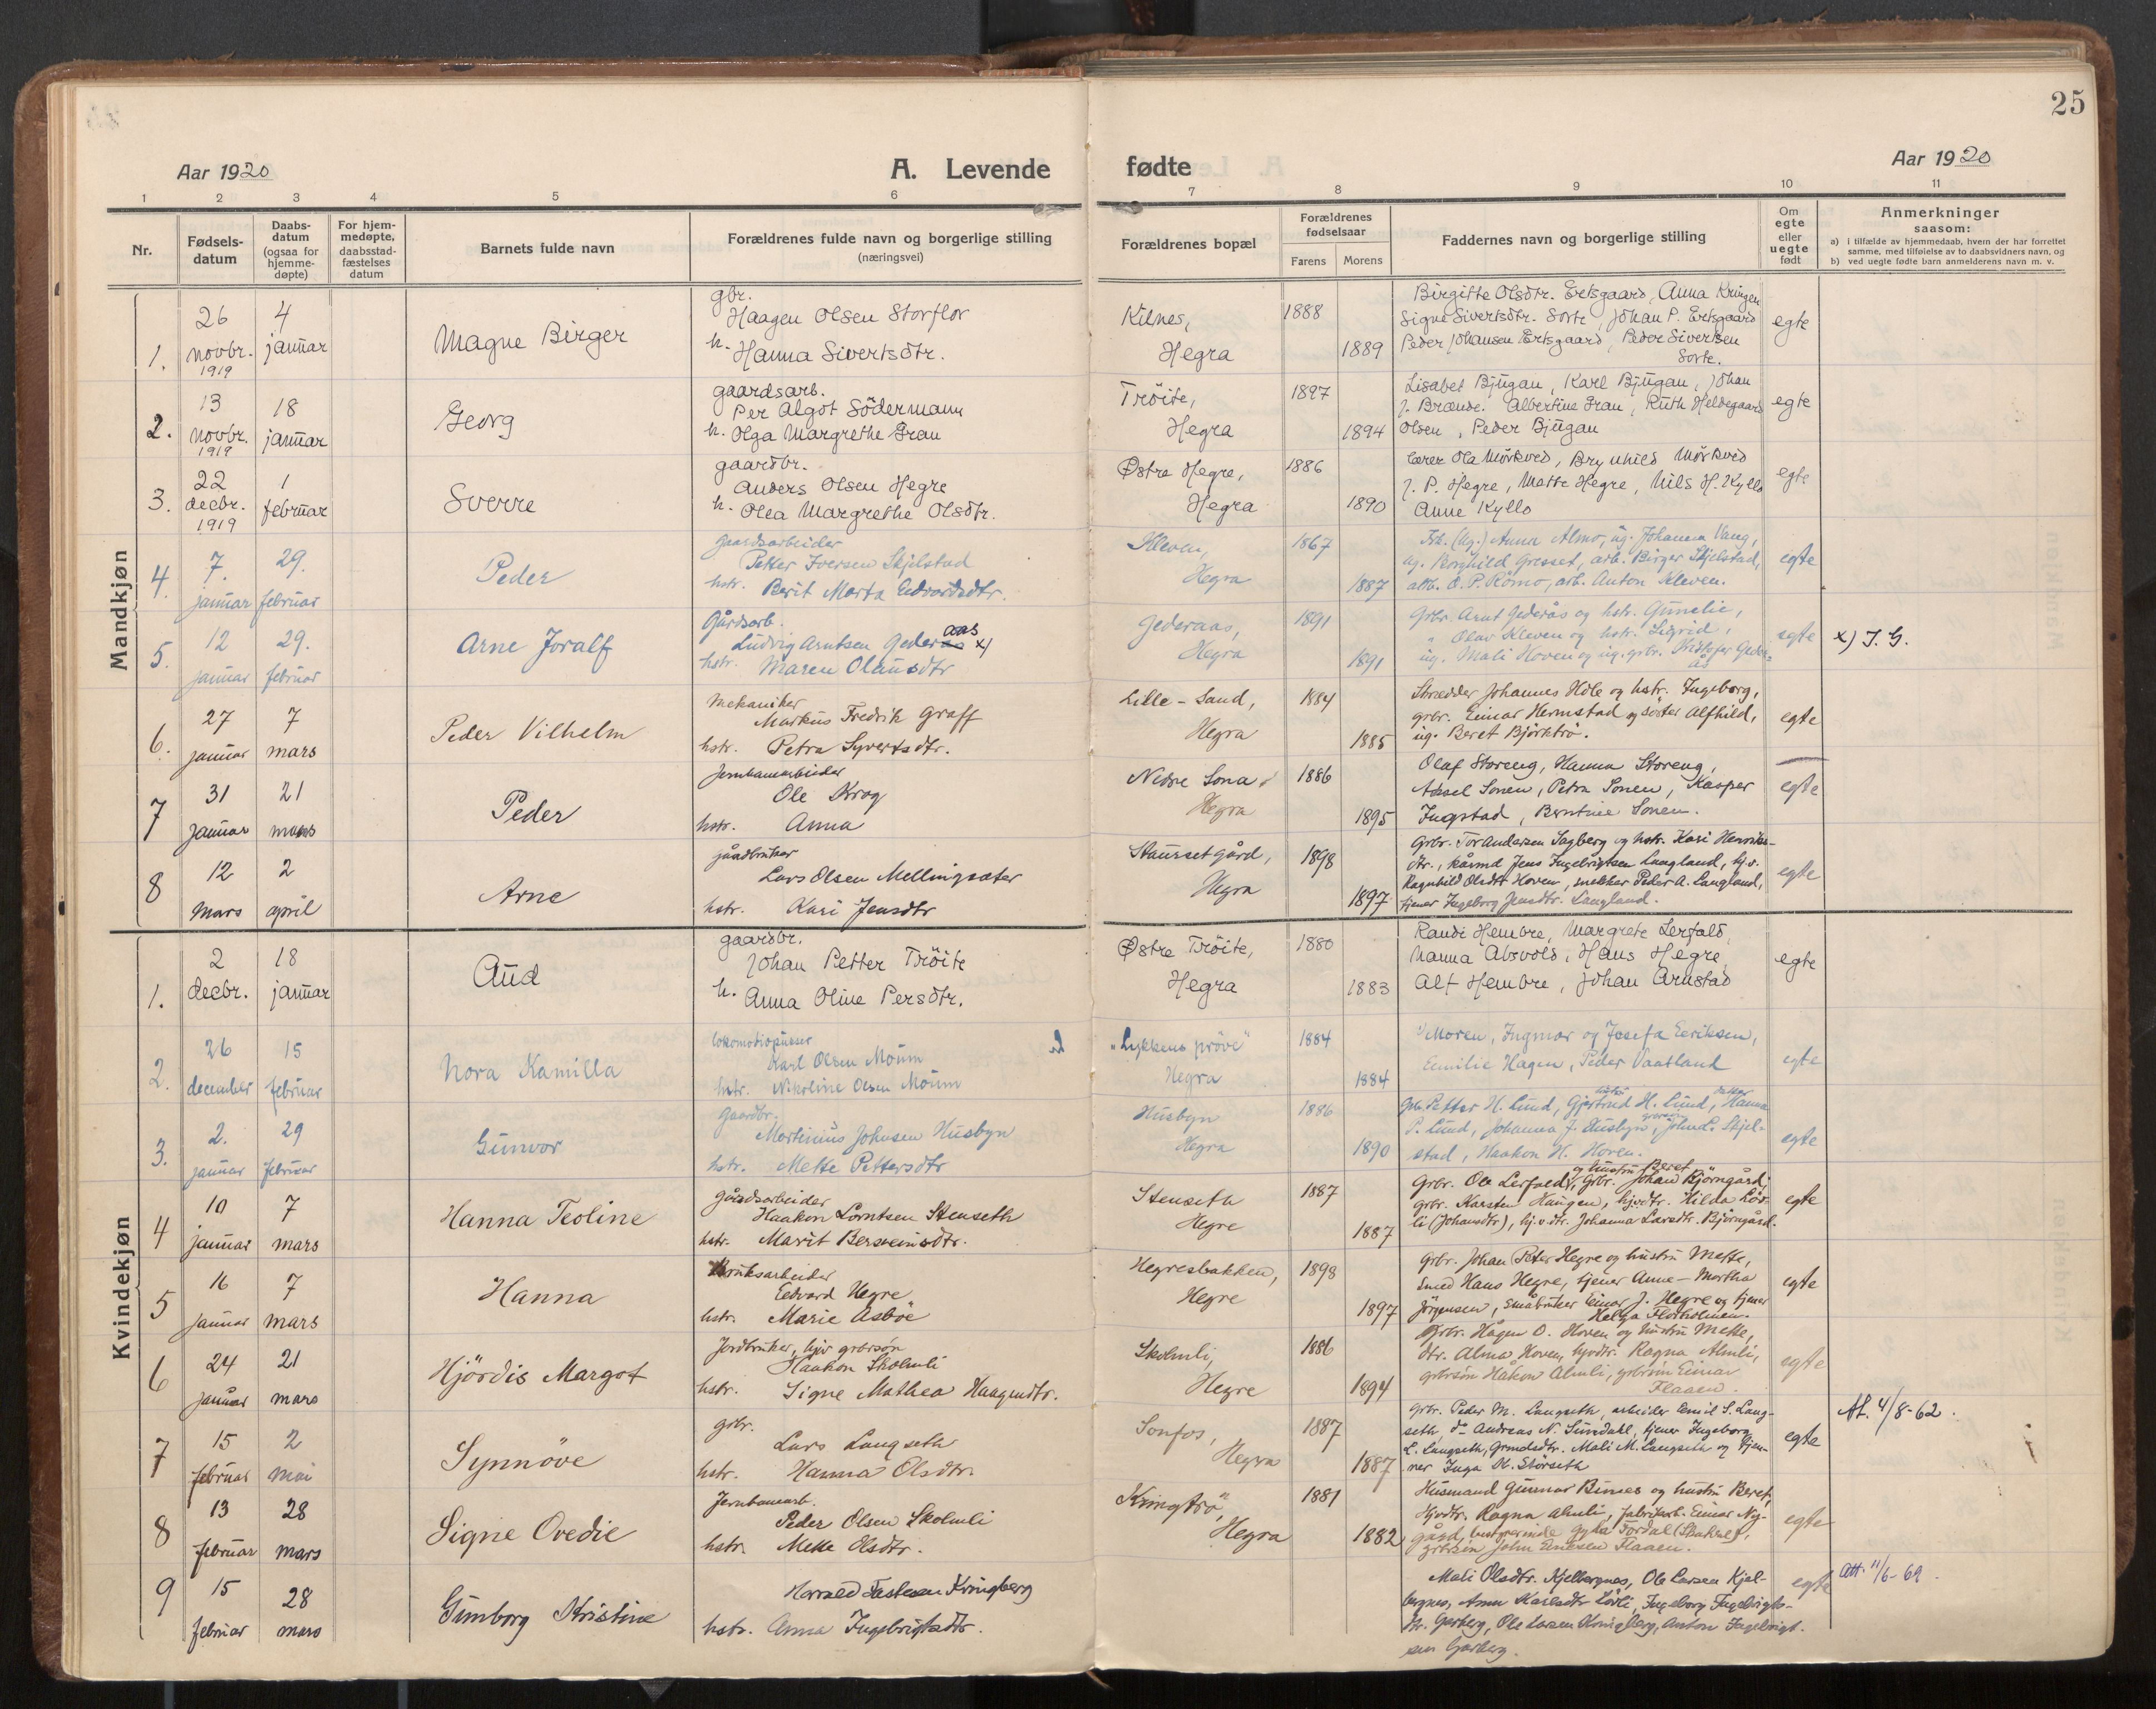 25
Aar 1920
A. Levende
fødte
Aar 1920
1 2 3 4 5 6 7 8 9 10 11
Nr.
Fødsels-
datum
Daabs-
datum
(ogsaa for
hjemme-
døpte)
For hjem-
medøpte,
daabsstad-
fæstelses
datum
Barnets fulde navn
Forældrenes fulde navn og borgerlige stilling
(næringsvei)
Forældrenes bopæl
Forældrenes
fødselsaar
Farens
Morens
Faddernes navn og borgerlige stilling
Om
egte
eller
uegte
født
Anmerkninger
saasom:
a) i tilfælde av hjemmedaab, hvem der har forrettet
samme, med tilføielse av to daabsvidners navn, og
b) ved uegte fødte barn anmelderens navn m. v.
Mandkjøn
1. 26 novbr. 1919
4 januar
Magne Birger
gbr.
Haagen Olsen Storflor
h. Hanna Sivertsdtr.
Kilnes,
Hegra
1888
1889
Birgitte Olsdtr. Ertsgaard, Anna Kringen
Signe Sivertsdtr. Sorte, Johan P. Ertsgaard
Peder Johansen Ertsgaard, Peder Sivertsen
Sorte.
egte
2. 13 novbr. 1919
18 januar
Georg
gaardsarb.
Per Algot Södermann
h. Olga Margrethe Grau
Tröite,
Hegra
1897
1894
Lisabet Bjugan, Karl Bjugan, Johan
J. Brænde. Albertine Grau, Ruth Heldegaard
Olsen, Peder Bjugan
egte
3. 22 decbr. 1919
1 februar
Sverre
gaardbr.
Anders Olsen Hegre
h. Olea Margrethe Olsdtr.
Østre Hegre,
Hegra
1886
1890
lærer Ola Mörkved, Brynhild Mörkved
J. P. Hegre, Mette Hegre, Nils H. Kyllo
Anne Kyllo
egte
4. 7. januar
29. februar
Peder
Gaardsarbeider
Petter Iversen Skjelstad
hstr. Berit Marta Edvardsdtr.
Kleven,
Hegra
1867
1887
(ug.) Anna Almo, ug. Johanna Vang,
ug. Borghild Gresset, arb. Birger Skjelstad,
arb. O. P. Römo, arb. Anton Kleven.
egte
5. 12 januar
29. februar
Arne Joralf
Gårdsarb.
Ludvig Arntsen Gederaas x)
hstr. Maren Olausdtr
Gederaas,
Hegra
1891
1891
Grbr. Arnt Gederås og hstr. Gunelie,
" Olav Kleven og hstr. Sigrid,
ug. Mali Hoven og ug. grbr. Kristofer Geder-
ås
egte
x) J. G.
6. 27 januar
7 mars
Peder Vilhelm
Mekaniker
Markus Fredrik Graff
hstr. Petra Syvertsdtr.
Lille-Sand,
Hegra
1884
1885
Skredder Johannes Hole og hstr. Ingeborg,
grbr. Einar Hermstad og söster Alfhild,
ug. Beret Björktrö.
egte
7 31 januar
21 mars
Peder
Jernbanearbeider
Ole Krog
hstr. Anna
Nedre Sona,
Hegra
1886
1895
Olaf Storeng, Hanna Storeng,
Aksel Sonen, Petra Sonen, Kasper
Ingstad, Berntine Sonen.
egte
8 12 mars
2 april
Arne
gårdbruker
Lars Olsen Mellingsæter
hstr. Kari Jensdtr
Staursetgård,
Hegra
1898
1897
Grbr. Tor Andersen Sagberg og hstr. Kari Henriks-
dtr., kårmd Jens Ingebrigtsen Langland, hj.v.
Ragnhild Olsdtr Hoven, snekker Peder A. Langland,
tjener Ingeborg Jensdtr. Langland.
egte
Kvindekjøn
1. 2 decbr.
18 januar
Aud
gaardbr.
Johan Petter Tröite
h. Anna Oline Persdtr.
Østre Tröite,
Hegra
1880
1883
Randi Hembre, Margrete Lerfald,
Nanna Alsvold, Hans Hegre,
Alf Hembre, Johan Arnstad
egte
2. 26 december
15 februar
Nora Kamilla
lokomotivpusser
Karl Olsen Moum
hstr. Nikoline Olsen Moum
"Lykkens pröve"
Hegra
1884
1884
Moren, Ingmar og Josefa Eeriksen,
Emilie Hagen, Peder Vaatland
egte
3. 2. januar
29 februar
Gunvor
Gaardbr.
Martinus Johnsen Husbyn
hstr. Mette Pettersdtr
Husbyn
Hegra
1886
1890
Grb. Petter H. Lund, hustru Gjertrud H. Lund, datter Hanna
P. Lund, Johanna J. Husbyn, John P. Skjel-
stad, Haakon H. Hoven.
egte
4 10 januar
7 mars
Hanna Teoline
Gårdsarbeider
Haakon Lorntsen Stenseth
hstr. Marit Bersveinsdtr.
Stenseth
Hegre
1887
1887
Grbr. Ole Lerfald og hustru Beret, Grbr. Johan Björngård,
grbr. Karsten Haugen, hjvdtr. Hilda Löv-
li (Johansdtr), hj.v.dtr. Johanna Larsdtr. Björngård.
egte
5 16 januar
7 mars
Hanna
Bruksarbeider
Edvard Hegre
hstr. Marie Asböe
Hegresbakken,
Hegre
1898
1897
Grbr. Johan Peter Hegre og hustru Mette,
Smed Hans Hegre, tjener Anne-Martha
Jörgensen, Småbruker Einar J. Hegre og tjener
Helga Florholmen.
egte
6 24 januar
21 mars
Hjördis Margot
Jordbruker, hjv grbrsön
Haakon Skolmli
hstr. Signe Mathea Haagensdtr.
Skolmli,
Hegre
1886
1894
Grbr. Hågen O. Hoven og hustru Mette,
dtr. Alma Hoven, hjvdtr. Ragna Almli,
grbrsön Håkon Almli, grbrsön Einar
Flaaen.
egte
7 15 februar
2 mai
Synnöve
grbr.
Lars Langseth
hstr. Hanna Olsdtr.
Sonfos,
Hegra
1887
1887
Grbr. Peder M. Langseth, arbeider Emil S. Lang-
seth, do Andreas N. Sundahl, tjener Ingeborg
L. Langseth, Grmdsdtr. Mali M. Langseth og tjen-
ner Inga M. Störseth
egte
At. 4/8-62.
8 13 februar
28 mars
Signe Ovedie
Jernbanearb.
Peder Olsen Skolmli
hstr. Mette Olsdtr.
"Kringtrö",
Hegra
1881
1882
Husmand Gunnar Bimes og hustru Beret,
Hjvdtr. Ragna Almli, fabrikarb. Einar Ny-
gård, Gyda Fordal,
grbrsön John Flaaen.
egte
9 15 februar
28 mars
Gunborg Kristine
Harald Fastesen Kringberg
hstr. Anna Ingebrigtsdtr.
Mali Olsdtr. Kjelbergnes, Ole Larsen Kjel-
bergnes, Anna Karlsdtr Lövli, Ingeborg Ingebrigts-
dtr. Garberg, Ole Larsen Kringberg, Anton Ingebrigt-
sen Garberg.
egte
Att. 11/6-69.